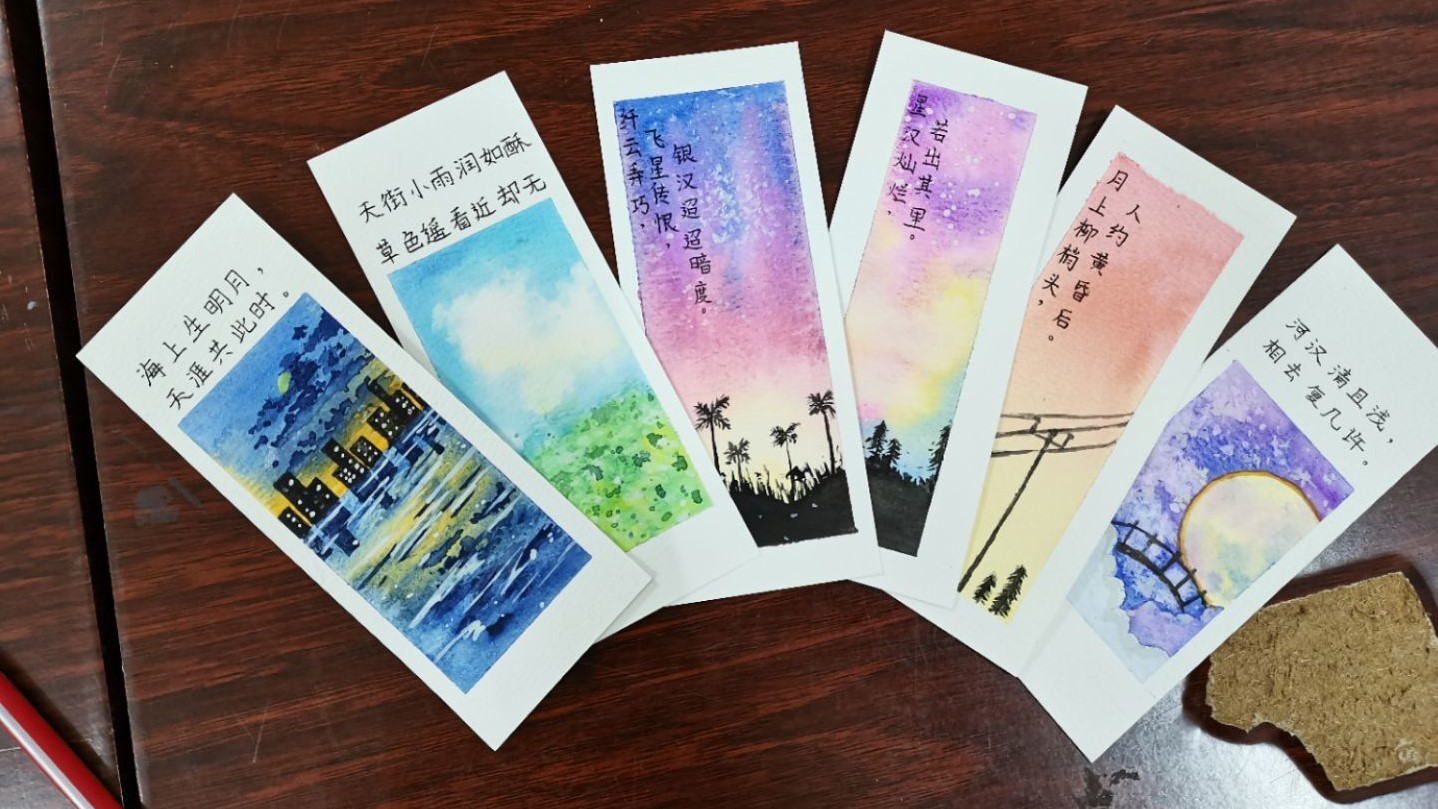 海上生明月，
天涯共此时。
天街小雨润如酥
草色遥看近却无
纤云弄巧，
飞星传恨，
银汉迢迢暗度。
星汉灿烂，
若出其里。
月上柳梢头，
人约黄昏后。
河汉清且浅，
相去复几许。